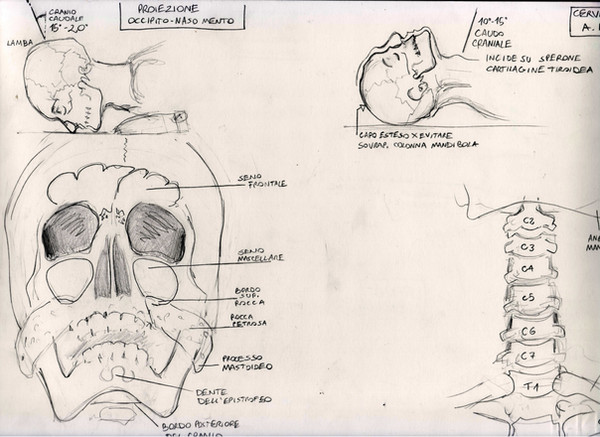 PROIEZIONE
OCCIPITO-NASO MENTO
CRANIO
CAUDALE
15°-20°
LAMBA
SENO
FRONTALE
SENO
MASCELLARE
BORDO
SUP.
ROCCA
ROCCA
PETROSA
PROCESSO
MASTOIDEO
DENTE
DELL'EPISTROFEO
BORDO POSTERIORE
DEL CRANIO
10°-15°
CAUDO
CRANIALE
INCIDE SU SPERONE
CARTILAGINE TIROIDEA
CAPO ESTESO X EVITARE
SOVRAP. COLONNA MANDIBOLA
CERV
A.
C2
C3
C4
C5
C6
C7
T1
AN
MAN